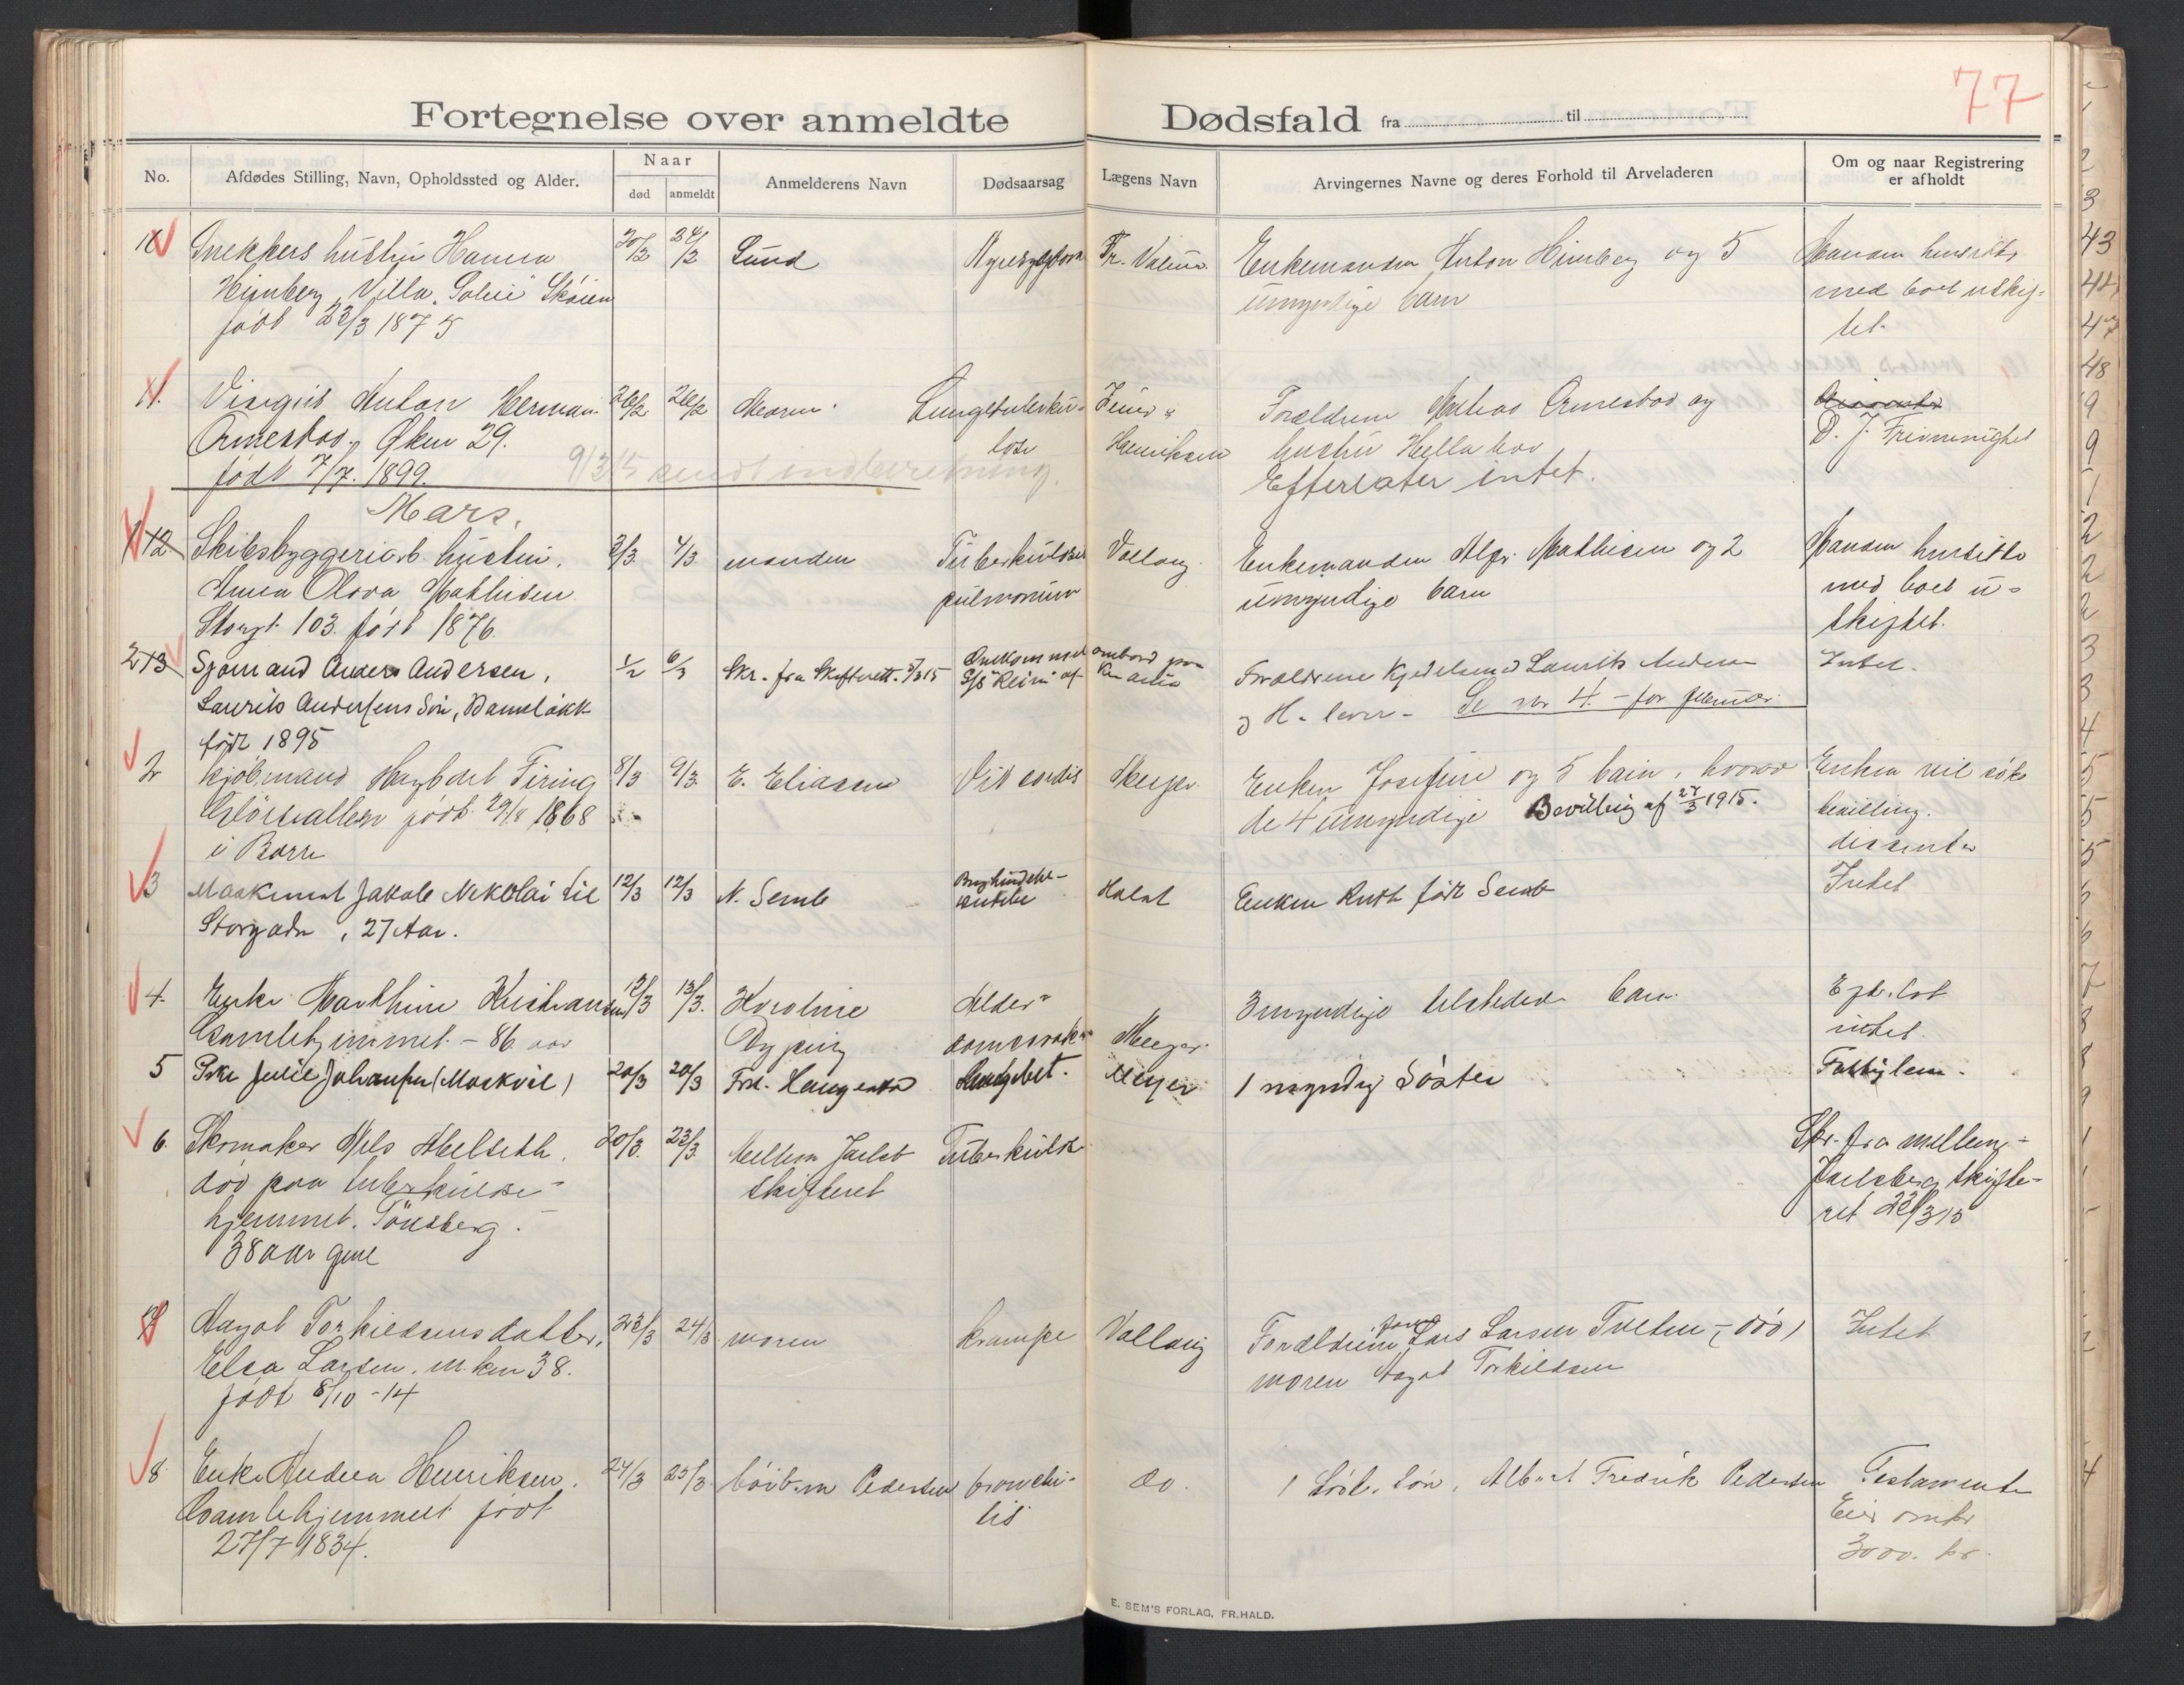 77
Fortegnelse over anmeldte Dødsfald fra til
No.
Afdødes Stilling, Navn, Opholdssted og Alder.
Naar
død
anmeldt
Anmelderens Navn
Dødsaarsag
Lægens Navn
Arvingernes Navne og deres Forhold til Arveladeren
Om og naar Registrering
er afholdt
10 Snekkers hustru Hanna 20/2 24/2 Lund Nyresygdom Fr. Enkemanden Anton Himberg og 5 Manden hensitter
Himberg, Villa "Solvei" Skåien umyndige barn med boet uskif-
født 23/3 1875 tet.
11. Anton Herman 26/2 26/2 Moren. Lungetuberku- Jens Forældrene Mathias Ormestad og Dissenter
Ormestad, Øken 29. lose Henriksen hustru Hella hvv D. J. Frimenighet
født 7/7. 1899. 9/3 15 sendt indberetning. Efterlater intet.
Mars.
1 12 Skibsbyggeriarb. hustru. 3/3 4/3 manden Tuberkulose Vallang. Enkemanden Alfr. Mathisen og 2 Manden hensitte
Anna Olova Mathisen. pulmonum umyndige barn med boet u-
Storgt. 103. født 1876. skiftet.
2 13 Sjømand Anders Andersen, 1/2 6/3 Skr. fra Skifterett. 5/3 15 Omkommet ombord paa Forældrene Kjedelsmed Laurits Andersen Intet.
Laurits Andersens Søn, S/S "Reim" af og H. lever - Se nr 4. - for februar.
født 1895
2 Kjøbmand Firing 8/3 9/3. E. Eliasen Vit cordis Meyer. Enken Josefine og 5 barn, hvorav Enken vil søke
født 29/8 1868 de 4 umyndige Bevilling af 27/3 1915. bevilling.
i Borre dissenter
3 Maskinist Jakob Nikolai Lie 12/3 12/3 N. Semb Brysthindebe- Holst Enken Ruth født Semb Intet
Storgaden, 27 Aar. tændelse
4. Enke Marthine Kristiansen 12/3 13/3. Karoline Alder- 3 myndige tilstedev. barn. Eft. lot
Gamlehjemmet. - 86 aar domssvakhet Meyer. intet.
5 Pike Julie Johansen (Moskvil) 20/3 20/3 Frk. Haugestad Meyer 1 myndig Søster Fattiglem.
6. Skomaker Nils Melseth. 20/3. 23/3 Mellem Jarlsb Tuberkulose Skr. fra mellem-
død paa tuberkulose- skifteret Jarlsberg skifte-
hjemmet. Tönsberg. - ret 22/3 15
38 aar gml
7 Aagot Torkildsens datter, 23/3 24/3 moren krampe Vallang Forældrene Lars Larsen Tveten (død) Intet
Elsa Larsen. m.ken 38. moren Aagot Torkildsen
født 8/10 - 14
8. Enke Andrea Henriksen. 24/3 25/3. Pedersen bronchi- do. 1 søn, Albert Fredrik Pedersen Testamente
Gamlehjemmet født tis Eier omtr
27/7 1834. 3000. kr.
E. SEM'S FORLAG, FR.HALD.